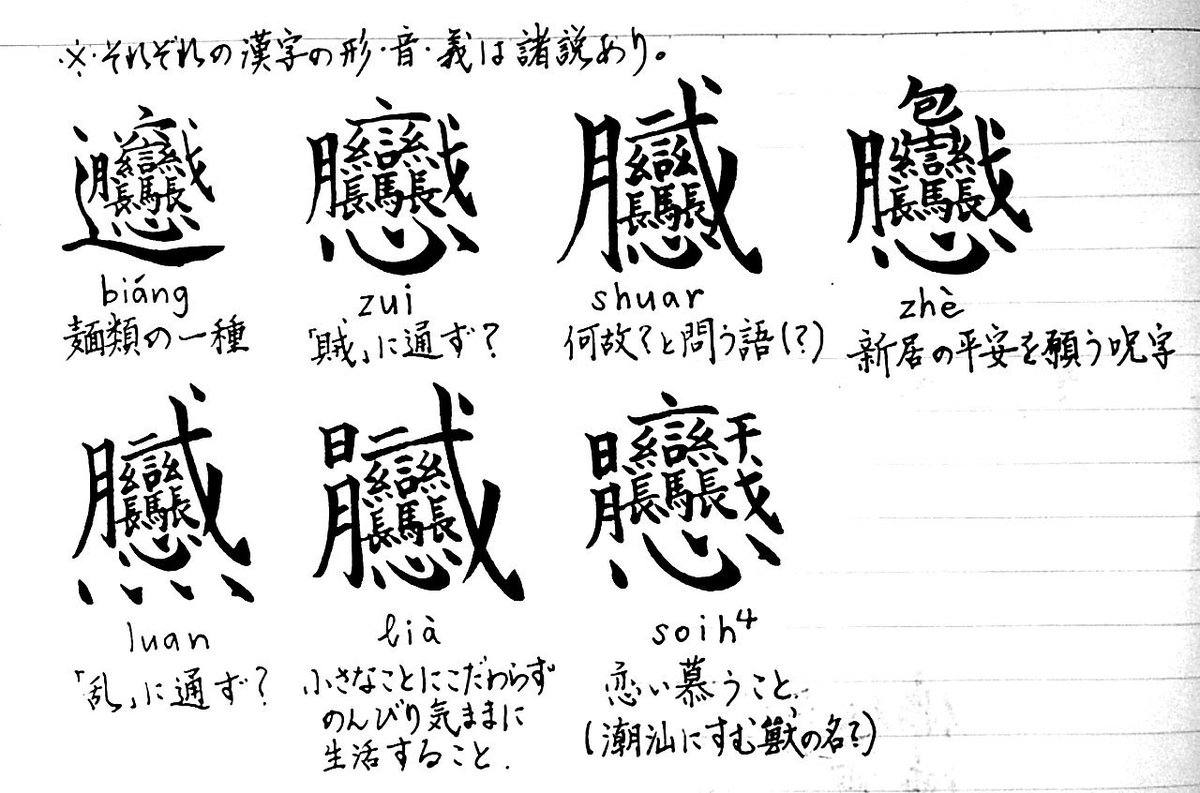 ※それぞれの漢字の形・音・義は諸説あり。
biáng
zui
shuar
zhè
麺類の一種
「賊」に通ず?
何故?と問う語(?)
新居の平安を願う呪字
luan
lià
soih⁴
「乱」に通ず?
小さなことにこだわらず
のんびり気ままに
生活すること.
恋い慕うこと、
(潮汕にすむ獣の名?)